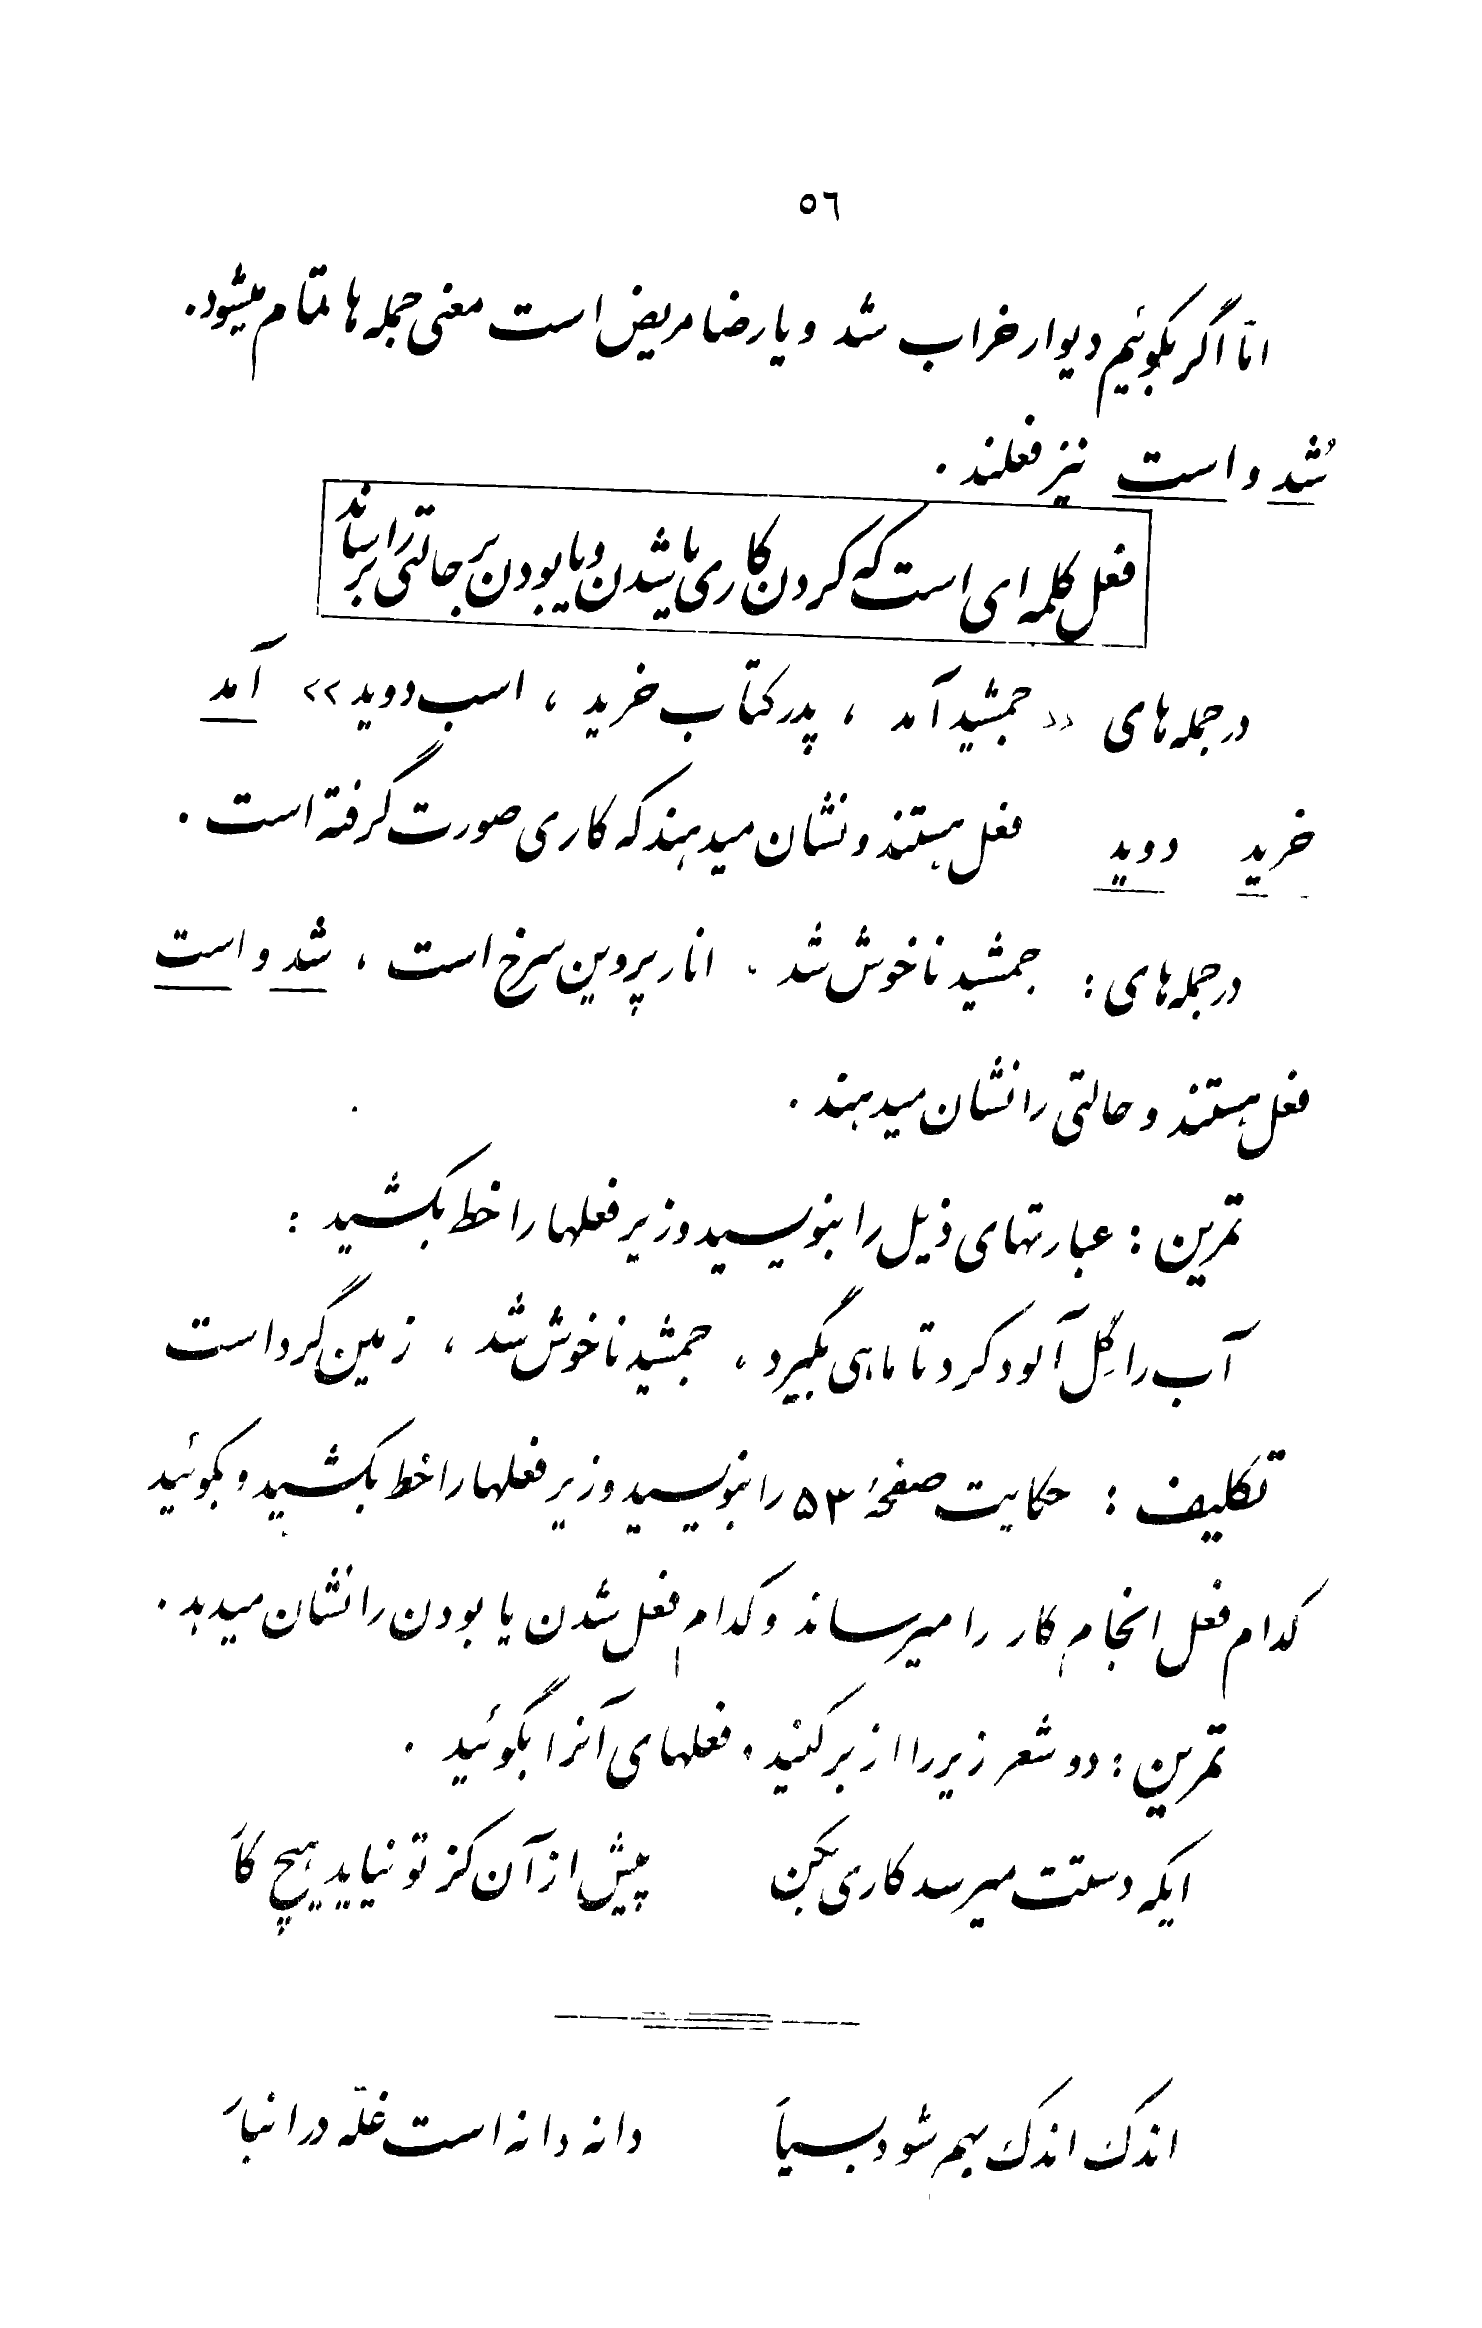 ٥٦
امّا اگر بگوئیم دیوار خراب شد و یا رضا مریض است معنی جمله ها تمام میشود.
شُد و است نیز فعلند.
فعل کلمه ای است که کردن کاری یا شدن و یا بودن بر حالتی را برساند
در جمله های «جمشید آمد ، پدر کتاب خرید ، اسب دوید» آمد
خرید دوید فعل هستند و نشان میدهند که کاری صورت گرفته است.
در جمله های : جمشید ناخوش شد . انار پروین سرخ است ، شد و است
فعل هستند و حالتی را نشان میدهند.
تمرین : عبارتهای ذیل را بنویسید و زیر فعلها را خط بکشید :
آب را گِل آلود کرد تا ماهی بگیرد ، جمشید ناخوش شد ، زمین گرد است
تکلیف : حکایت صفحهٔ ۵۳ را بنویسید و زیر فعلها را خط بکشید و بگوئید
کدام فعل انجام کار را میرساند و کدام فعل شدن یا بودن را نشان میدهد.
تمرین : دو شعر زیر را از بر کنید و فعلهای آنرا بگوئید.
ایکه دستت میرسد کاری بکن پیش از آن کز تو نیاید هیچ کار
اندک اندک بهم شود بسیار دانه دانه است غلّه در انبار